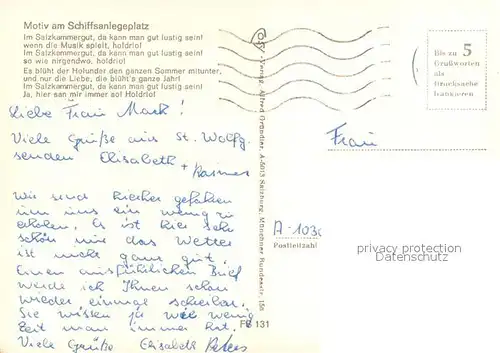 Motiv am Schiffsanlegeplatz
Im Salzkammergut, da kann man gut lustig sein!
wenn die Musik spielt, holdrio!
Im Salzkammergut, da kann man gut lustig sein!
so wie nirgendwo, holdrio!
Es blüht der Holunder den ganzen Sommer mitunter,
und nur die Liebe, die blüht's ganze Jahr!
Im Salzkammergut, da kann man gut lustig sein!
Ja, hier san mir immer auf Holdrio!
Liebe Frau Mark!
Viele Grüße aus St. Wolfg.
senden Elisabeth
+ Rainer
Wir sind hierher gefahren
um uns ein wenig zu
erholen. Es ist hier sehr
schön nur das Wetter
ist nicht ganz gut.
Einen ausführlichen Brief
werde ich Ihnen schon
wieder einmal schreiben.
Sie wissen ja wie wenig
Zeit man immer hat.
Viele Grüße Elisabeth Peters
Verlag Alfred Gründler, A-5013 Salzburg, Münchner Bundesstr. 158
FB 131
Bis zu 5
Grußworten
als
Drucksache
frankieren
Frau
A-1030
Postleitzahl
privacy protection
Datenschutz